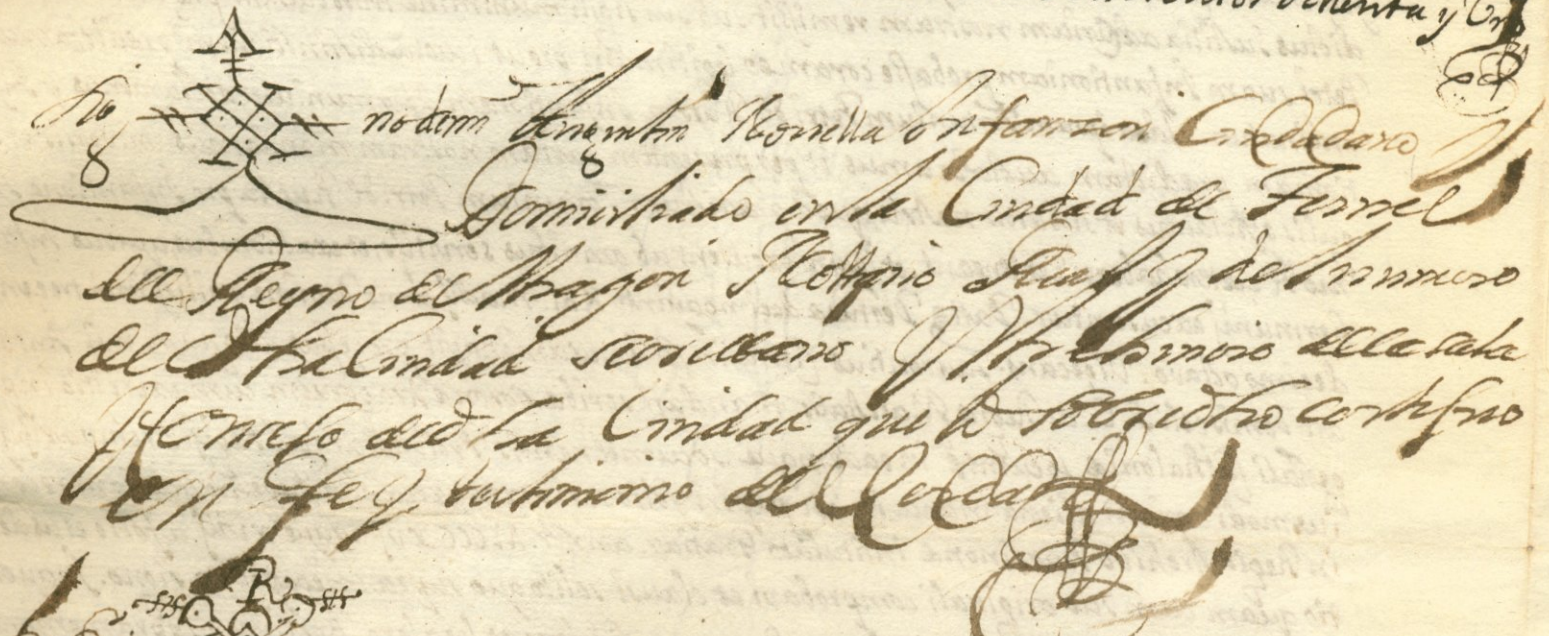 ochenta y Un
Sig no de mi Augustin Novella Infanzon Ciudadano
Domiciliado en la Ciudad de Teruel
del Reyno de Aragon Nottario Real y del numero
de dha Ciudad secretario y del numero de la sala
y Consejo de dha Ciudad que lo sobredho certifico
en Fe y testimonio de Verdad